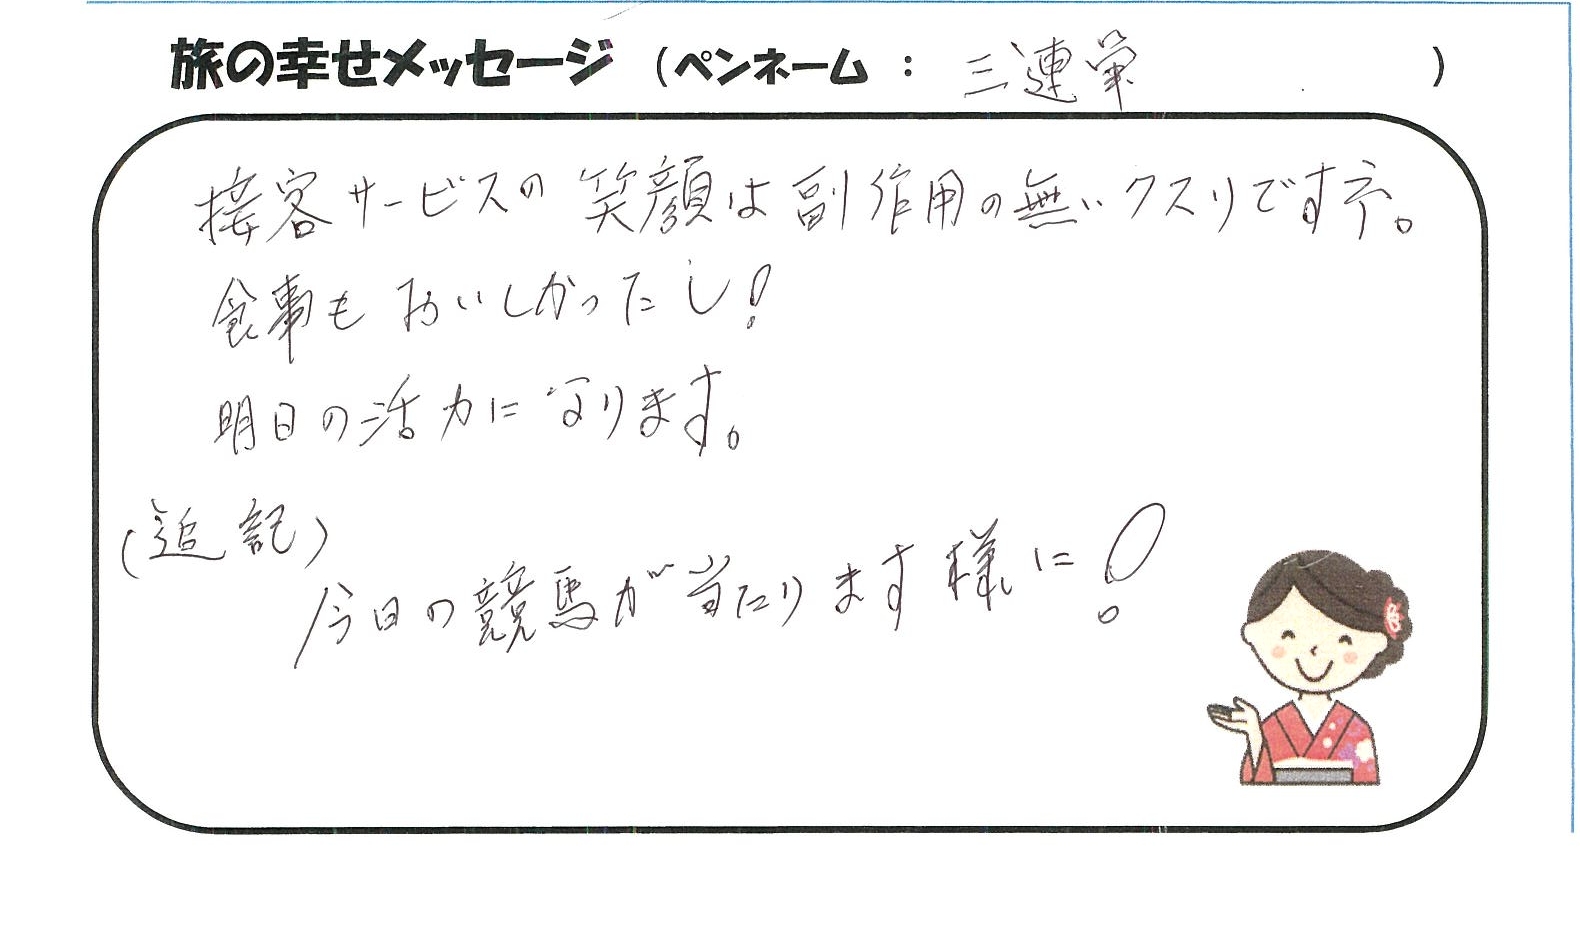 旅の幸せメッセージ (ペンネーム : 三連単)
接客サービスの笑顔は副作用の無いクスリですネ。
食事もおいしかったし!
明日の活力になります。
(追記)
今日の競馬が当たります様に!